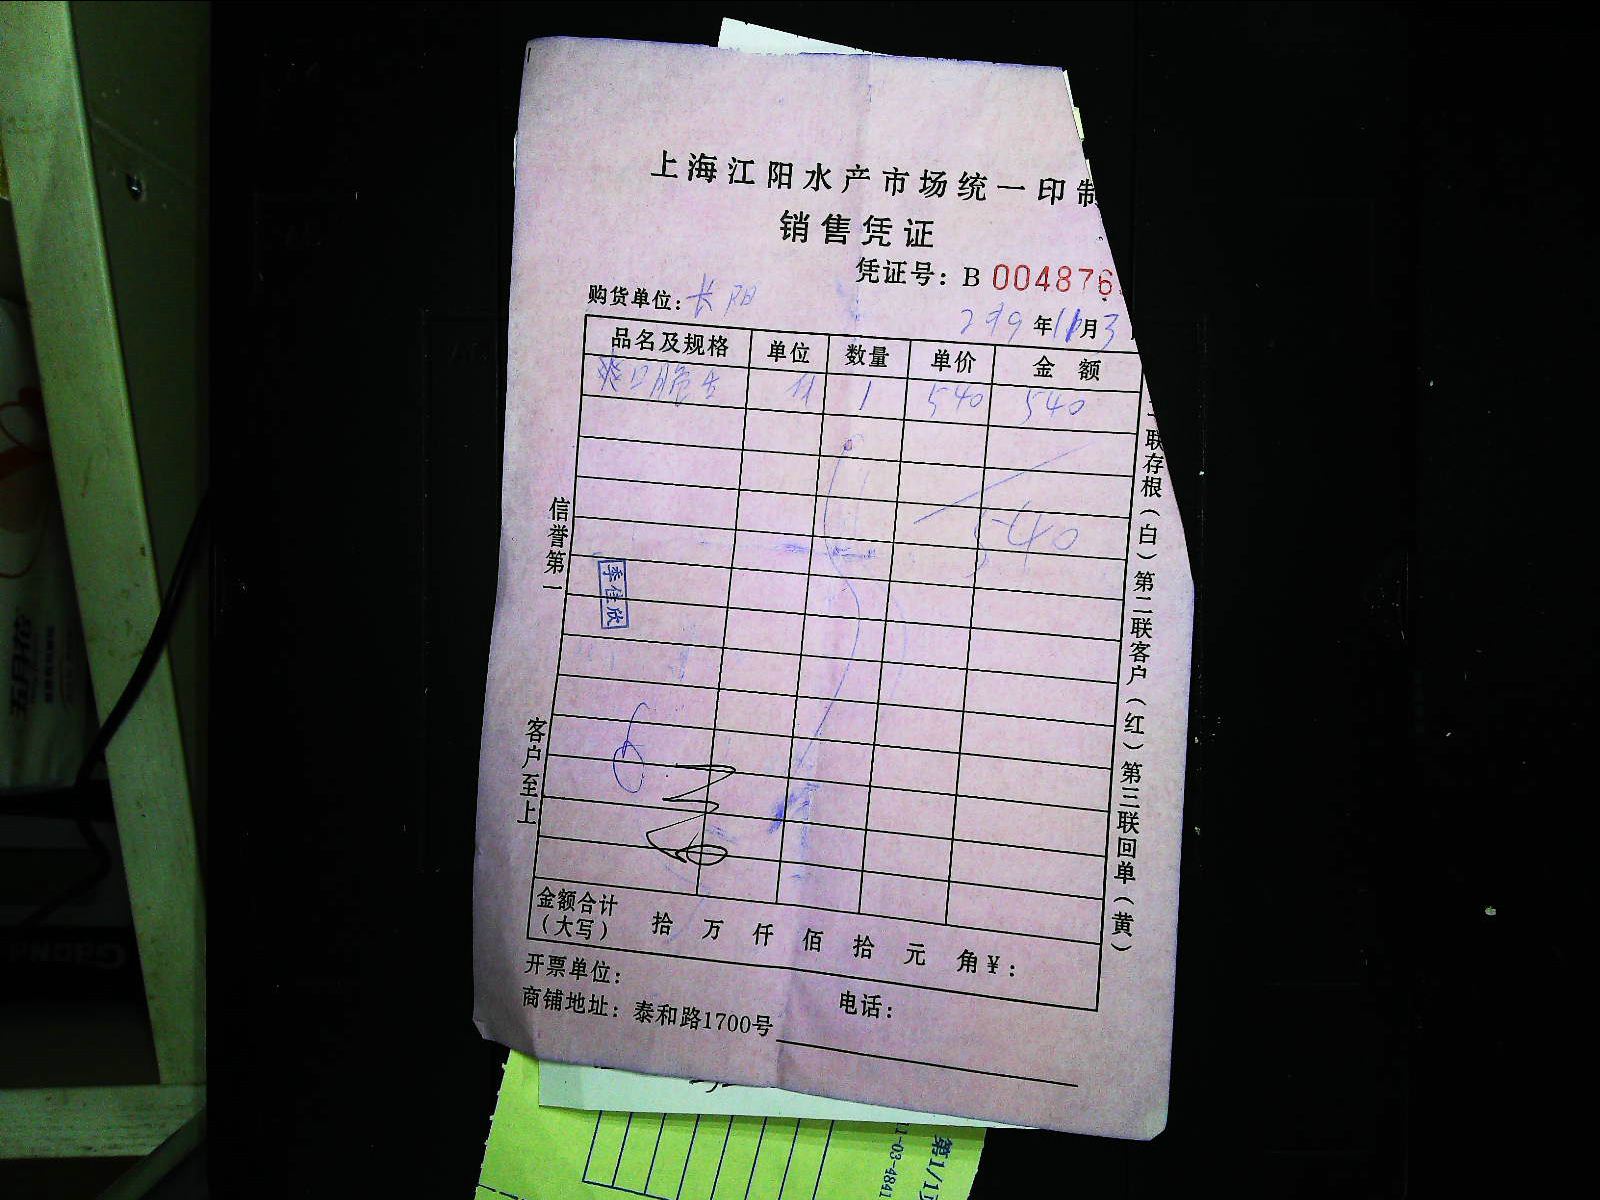 上海江阳水产市场统一印制
销售凭证
凭证号：B 004876
购货单位：长阳
年11月3
品名及规格 单位 数量 单价 金额
爽口脆 1 540 540
540
信誉第一
季佳欣
客户至上
联存根（白）第二联客户（红）第三联回单（黄）
金额合计（大写） 拾 万 仟 佰 拾 元 角 ¥：
开票单位：
电话：
商铺地址：泰和路1700号
1-03-4841
第1/1